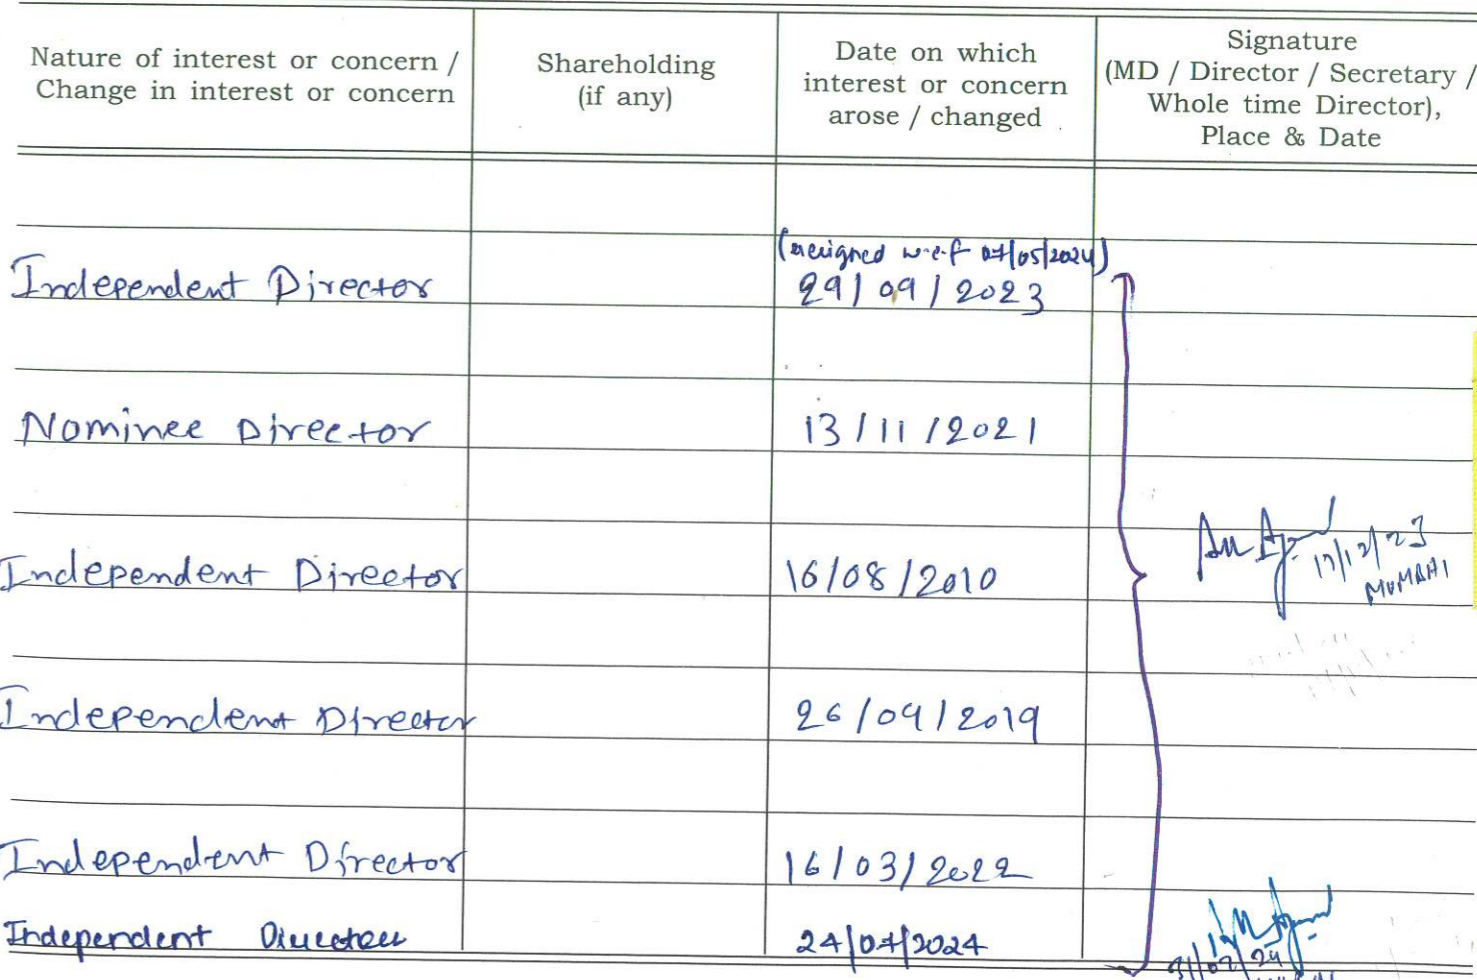 Nature of interest or concern /
Change in interest or concern
Shareholding
(if any)
Date on which
interest or concern
arose / changed
Signature
(MD / Director / Secretary /
Whole time Director),
Place & Date
(resigned w.e.f 07/05/2024)
Independent Director 29/09/2023
Nominee Director 13/11/2021
Independent Director 16/08/2010
MUMBAI
Independent Director 26/09/2019
Independent Director 16/03/2022
Independent Director 24/07/2024